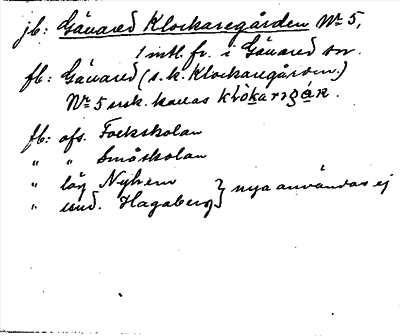 jb: Gånared Klockaregården № 5,
1 mtl. fr. i Gånared sn.
fb: Gånared (s.k. Klockaregården.)
№ 5 enk. kallas klòkarıgår.
fb: afs. Folkskolan
" " Småskolan
" läg Nyhem
" und. Hagaberg } nya användas ej